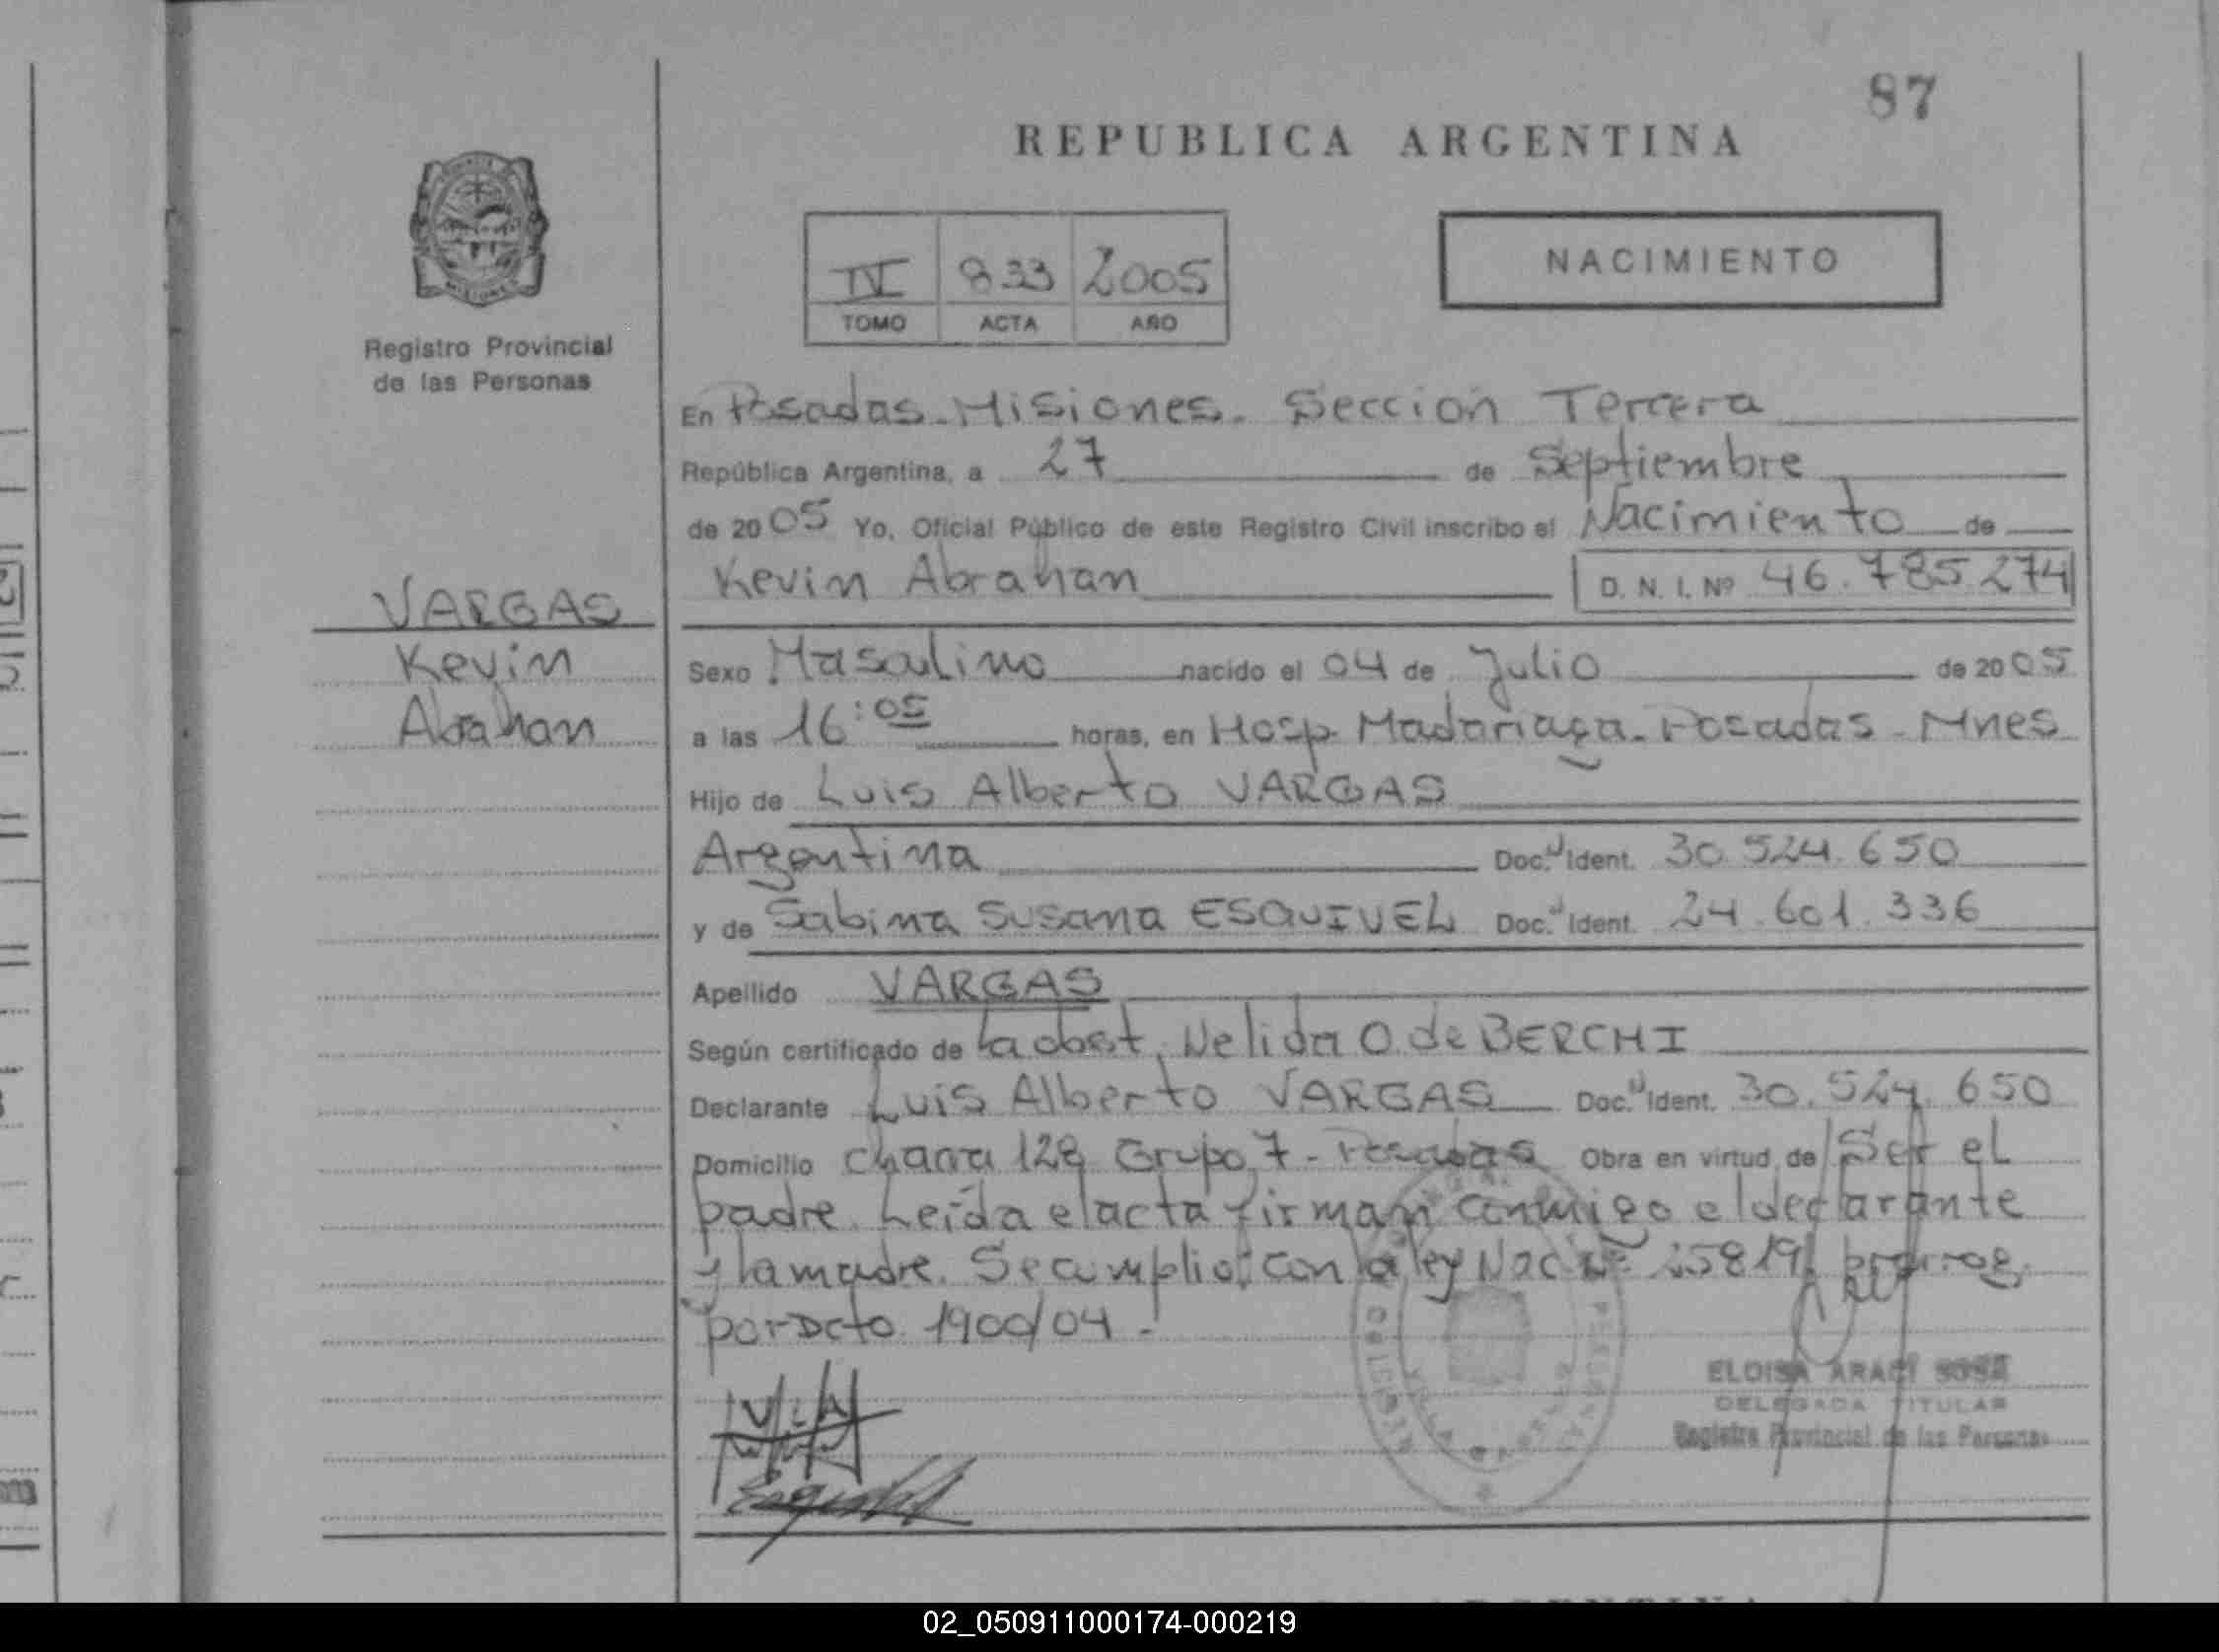 87
REPUBLICA ARGENTINA
IV 833 2005
TOMO ACTA AÑO
NACIMIENTO
MISIONES
Registro Provincial
de las Personas
En Posadas-Misiones. Sección Tercera
República Argentina, a 27 de Septiembre
de 2005 Yo, Oficial Público de este Registro Civil inscribo el Nacimiento de
Kevin Abrahan D.N.I. Nº 46.785.274
VARGAS
Kevin
Abrahan
Sexo Masculino nacido el 04 de Julio de 2005
a las 16:05 horas, en Hosp. Madariaga-Posadas-Mnes
Hijo de Luis Alberto VARGAS
Argentina Doc. Ident. 30.524.650
y de Sabina Susana ESQUIVEL Doc. Ident. 24.601.336
Apellido VARGAS
Según certificado de la obst. Nelida O. de BERCHI
Declarante Luis Alberto VARGAS Doc. Ident. 30.524.650
Domicilio chacra 128 Grupo 7-Posadas Obra en virtud de Ser el
padre. Leída el acta firman conmigo el declarante
y la madre. Se cumplió con la ley Nac Nº 25819 prorrog.
por Dcto 1900/04.-
ELOISA ARACI SOSA
DELEGADA TITULAR
Registro Provincial de las Personas
02_050911000174-000219